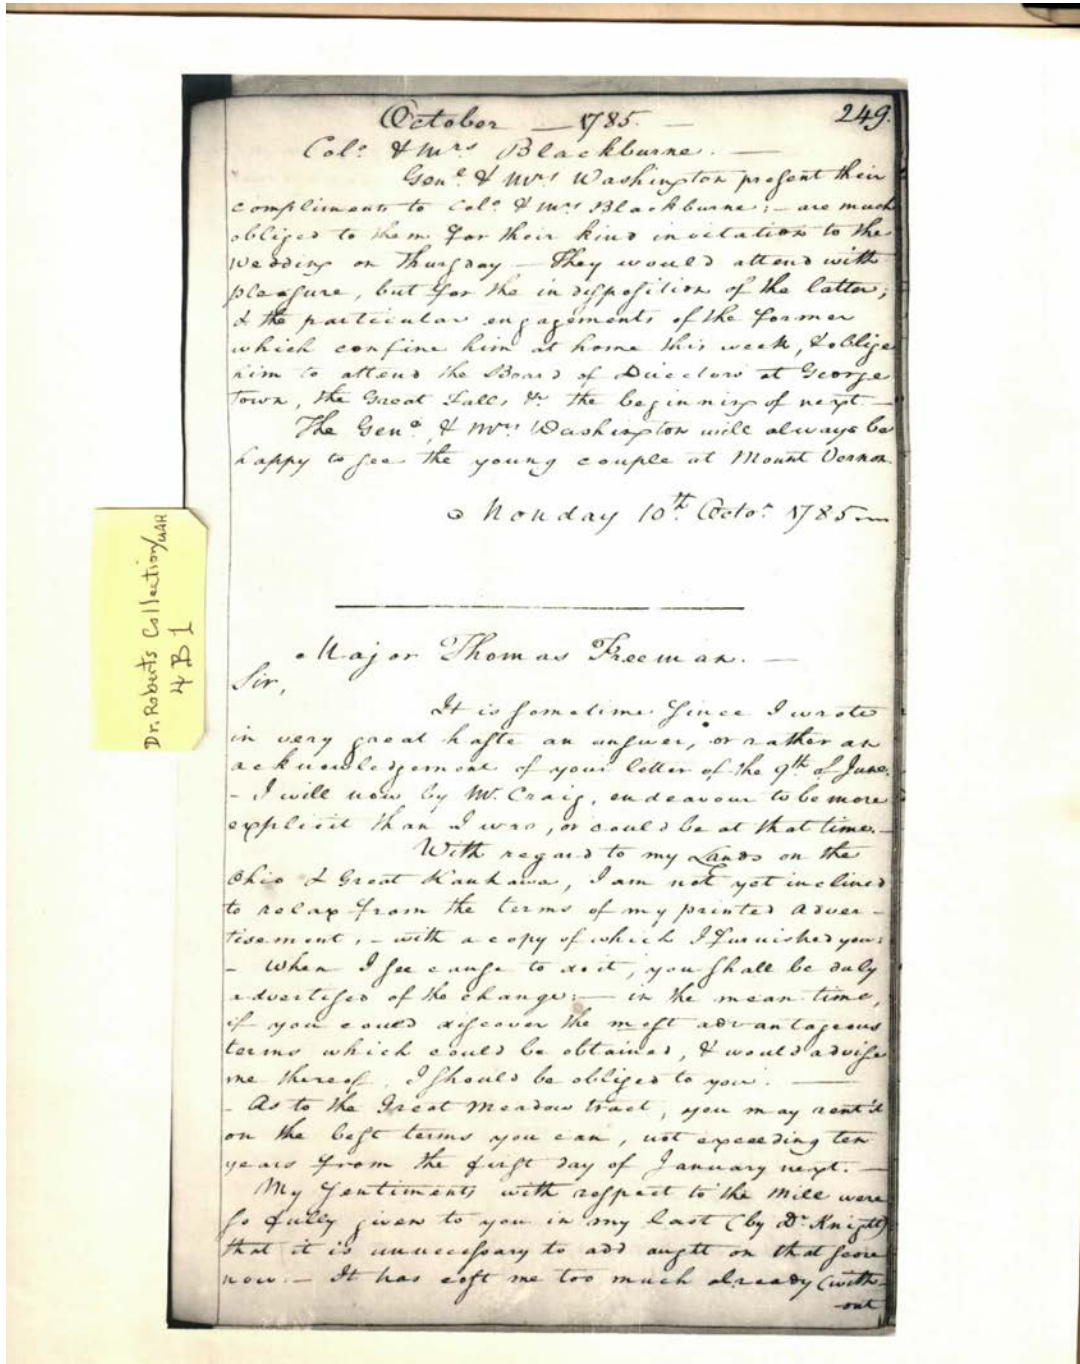 October — 1785. —
249.
Colo. & Mrs Blackburne. —
Genl. & Mrs Washington present their
compliments to Colo. & Mrs Blackburne; – are much
obliged to them for their kind invitation to the
Wedding on thursday – They would attend with
pleasure, but for the indisposition of the latter;
& the particular engagements of the former
which confine him at home this week, & oblige
him to attend the Board of Directors at George
Town, the Great Falls &c. the beginning of next. —
The Genl. & Mrs Washington will always be
happy to see the young couple at Mount Vernon.
Monday 10th. Octor. 1785
Major Thomas Freeman. —
Sir,
It is sometime since I wrote
in very great haste an answer, or rather an
acknowledgement of your letter of the 9th of June.
– I will now by Mr. Craig, endeavour to be more
explicit than I was, or could be at that time. –
With regard to my Lands on the
Ohio & Great Kanhawa, I am not yet inclined
to relax from the terms of my printed adver-
tisement, – with a copy of which I furnished you:
– When I see cause to do it, you shall be duly
advertised of the change: — in the mean time,
if you could discover the most advantageous
terms which could be obtained, & would advise
me thereof, I should be obliged to you. —
– As to the Great Meadow tract, you may rent it
on the best terms you can, not exceeding ten
years from the first day of January next. —
My sentiments with respect to the Mill were
so fully given to you in my last (by Dr. Knight)
that it is unnecessary to add aught on that score
now. – It has cost me too much already (with-
out
Dr. Roberts Collection/UAH
4B1